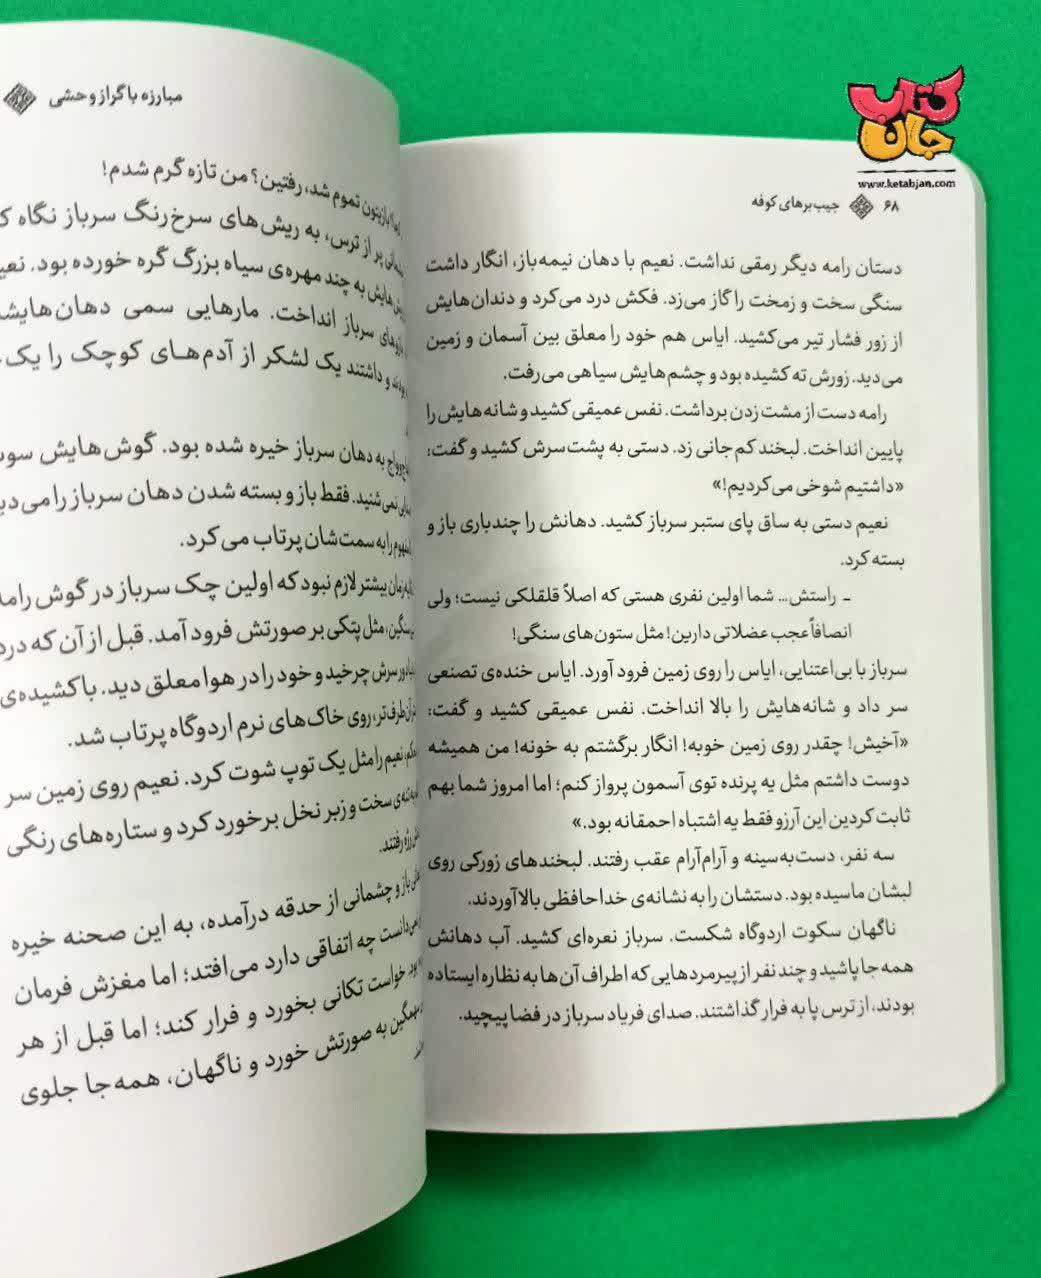 کتاب
جان
www.ketabjan.com
۶۸ جیب‌برهای کوفه
دستان رامه دیگر رمقی نداشت. نعیم با دهان نیمه‌باز، انگار داشت
سنگی سخت و زمخت را گاز می‌زد. فکش درد می‌کرد و دندان‌هایش
از زور فشار تیر می‌کشید. ایاس هم خود را معلق بین آسمان و زمین
می‌دید. زورش ته کشیده بود و چشم‌هایش سیاهی می‌رفت.
رامه دست از مشت زدن برداشت. نفس عمیقی کشید و شانه‌هایش را
پایین انداخت. لبخند کم‌جانی زد. دستی به پشت سرش کشید و گفت:
«داشتیم شوخی می‌کردیم!»
نعیم دستی به ساق پای ستبر سرباز کشید. دهانش را چندباری باز و
بسته کرد.
ـ راستش... شما اولین نفری هستی که اصلاً قلقلکی نیست؛ ولی
انصافاً عجب عضلاتی دارین! مثل ستون‌های سنگی!
سرباز با بی‌اعتنایی، ایاس را روی زمین فرود آورد. ایاس خنده‌ی تصنعی
سر داد و شانه‌هایش را بالا انداخت. نفس عمیقی کشید و گفت:
«آخیش! چقدر روی زمین خوبه! انگار برگشتم به خونه! من همیشه
دوست داشتم مثل یه پرنده توی آسمون پرواز کنم؛ اما امروز شما بهم
ثابت کردین این آرزو فقط یه اشتباه احمقانه بود.»
سه نفر، دست‌به‌سینه و آرام‌آرام عقب رفتند. لبخندهای زورکی روی
لبشان ماسیده بود. دستشان را به نشانه‌ی خداحافظی بالا آوردند.
ناگهان سکوت اردوگاه شکست. سرباز نعره‌ای کشید. آب دهانش
همه‌جا پاشید و چند نفر از پیرمردهایی که اطراف آن‌ها به نظاره ایستاده
بودند، از ترس پا به فرار گذاشتند. صدای فریاد سرباز در فضا پیچید.
مبارزه با گراز وحشی
بازیتون تموم شد، رفتین؟ من تازه گرم شدم!
پر از ترس، به ریش‌های سرخ‌رنگ سرباز نگاه
به چند مهره‌ی سیاه بزرگ گره خورده بود.
سرباز انداخت. مارهایی سمی
و داشتند یک لشکر از آدم‌های کوچک را
به دهان سرباز خیره شده بود. گوش‌هایش
نمی‌شنید. فقط باز و بسته شدن دهان سرباز را
را به سمت‌شان پرتاب می‌کرد.
زمان بیشتر لازم نبود که اولین چک سرباز در گوش
مثل پتکی بر صورتش فرود آمد. قبل از آن که درد
دور سرش چرخید و خود را در هوا معلق دید. با کشیده‌ی
طرف‌تر، روی خاک‌های نرم اردوگاه پرتاب شد.
نعیم را مثل یک توپ شوت کرد. نعیم روی زمین سر
سخت و زبر نخل برخورد کرد و ستاره‌های رنگی
رژه رفتند.
باز و چشمانی از حدقه درآمده، به این صحنه خیره
چه اتفاقی دارد می‌افتد؛ اما مغزش فرمان
خواست تکانی بخورد و فرار کند؛ اما قبل از هر
به صورتش خورد و ناگهان، همه‌جا جلوی